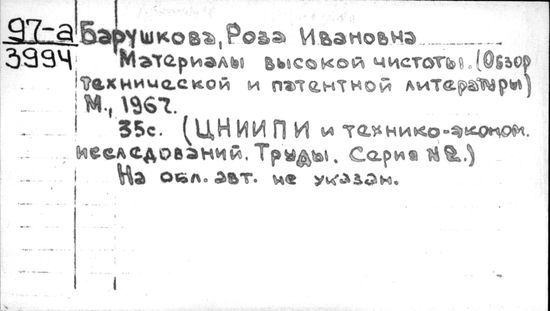 97-а Барушкова, Роза Ивановна
3994 Материалы высокой чистоты. (Обзор
технической и патентной литературы)
М., 1967.
35с. (ЦНИИПИ и технико-эконом.
исследований. Труды. Серия №2.)
На обл. авт. не указан.